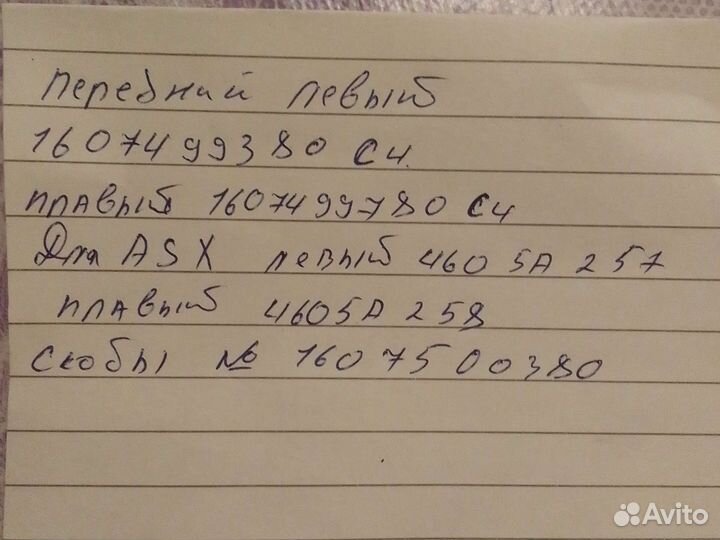 Передний левый
1607499380 С4.
правый 1607499780 С4
Для ASX левый 4605A257
правый 4605A258
скобы № 1607500380
Avito